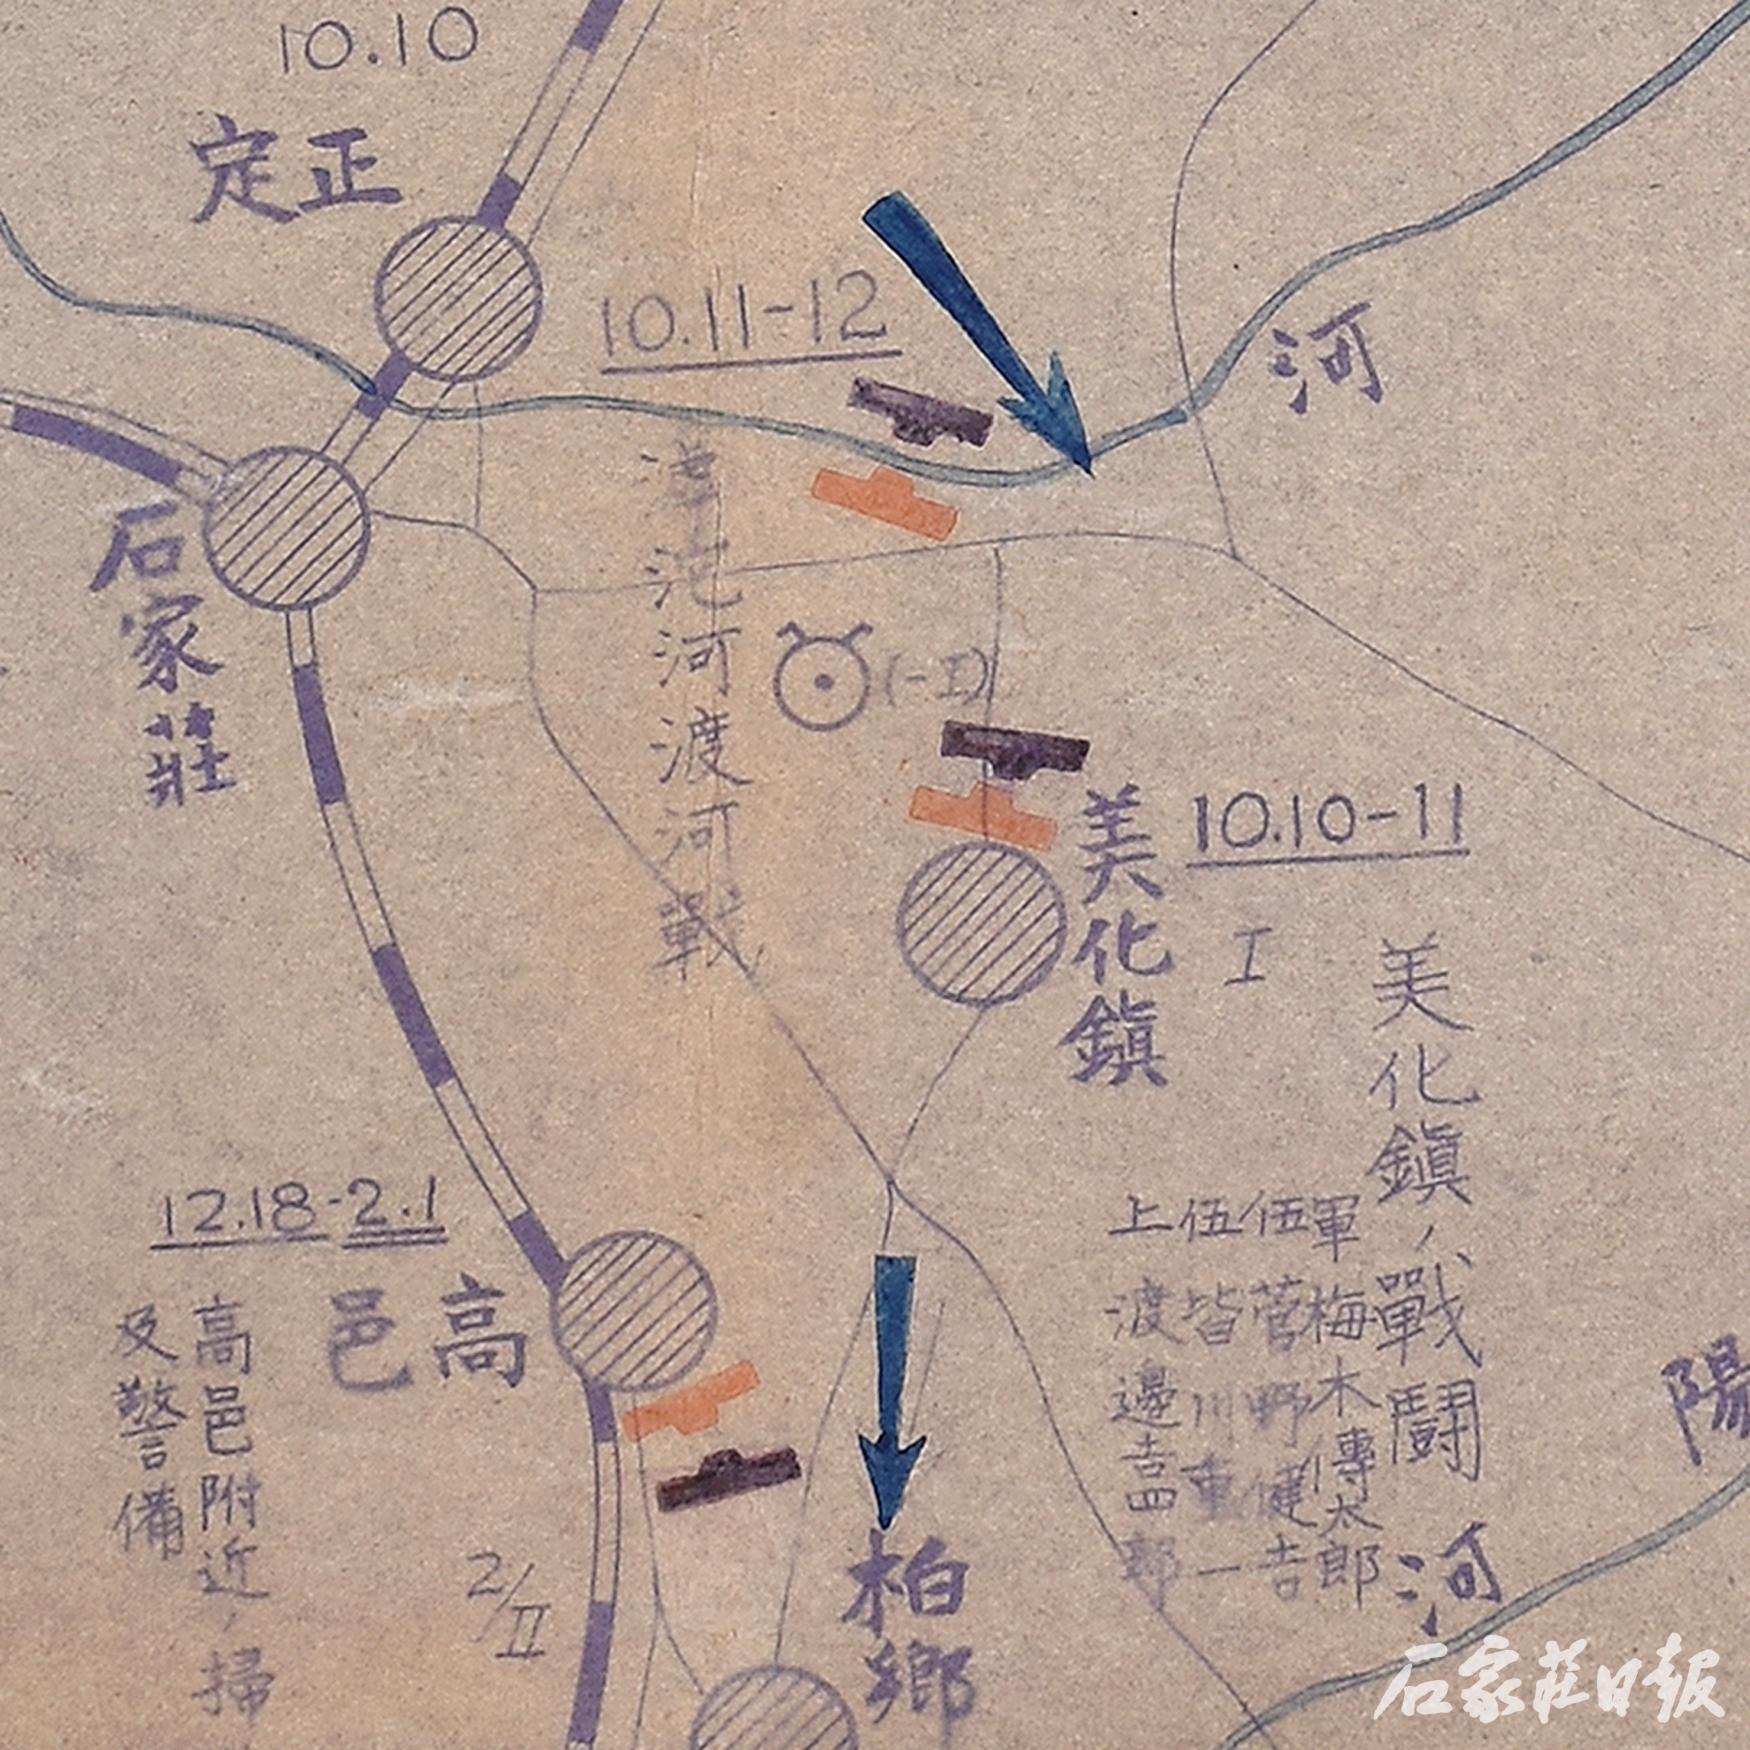 10.10
定正
10.11-12
河
滹沱河渡河戰
石家莊
(-I)
美化鎮
10.10-11
I
美化鎮ノ戰鬪
軍 梅木傳太郎
伍 菅野健吉
伍 皆川重一
上 渡邊吉四郎
12.18-2.1
高邑
高邑附近ノ掃
及警備
2/II
柏鄉
陽
河
石家莊日報